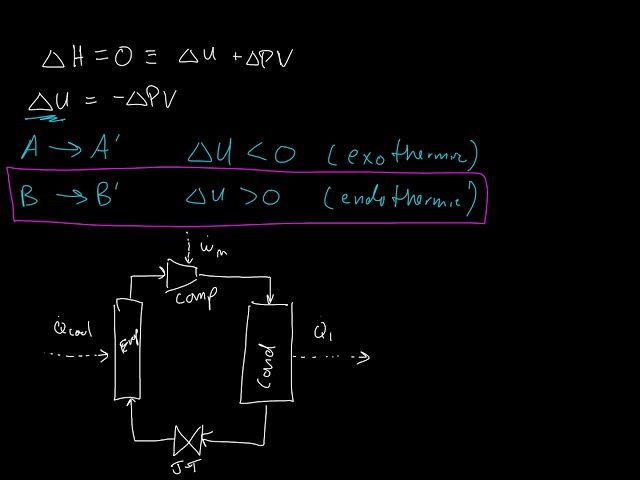 △H = 0 ≡ △U + △PV
△U = -△PV
A → A' △U < 0 (exothermic)
B → B' △U > 0 (endothermic)
Ẇin
Comp
Q̇cool
Evap
Cond
Q̇1
J-T